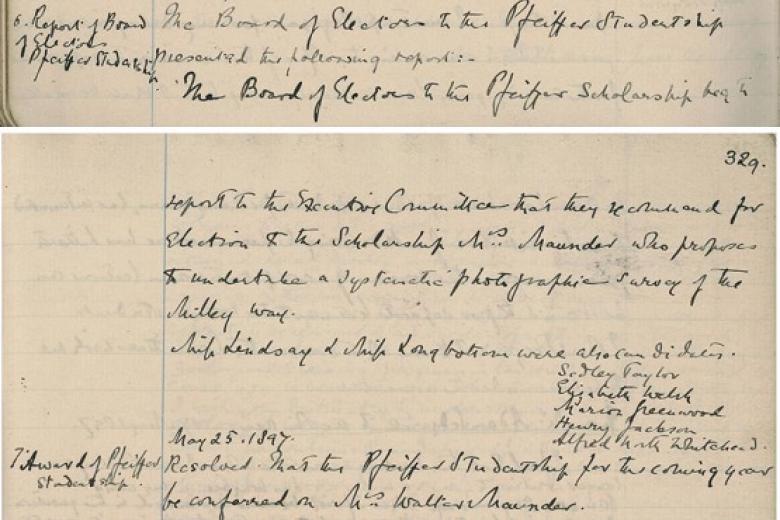 6. Report of Board
of Electors
Pfeiffer Studentship.
The Board of Electors to the Pfeiffer Studentship
presented the following report:-
The Board of Electors to the Pfeiffer Scholarship beg to
329.
report to the Executive Committee that they recommend for
Election to the Scholarship Mrs. Maunder who proposes
to undertake a systematic photographic survey of the
Milky Way.
Miss Lindsay & Miss Longbottom were also candidates.
Sedley Taylor
Elizabeth Welsh
Marion Greenwood
Henry Jackson
Alfred North Whitehead.
May 25. 1897.
7. Award of Pfeiffer
Studentship.
Resolved That the Pfeiffer Studentship for the coming year
be conferred on Mrs. Walter Maunder.